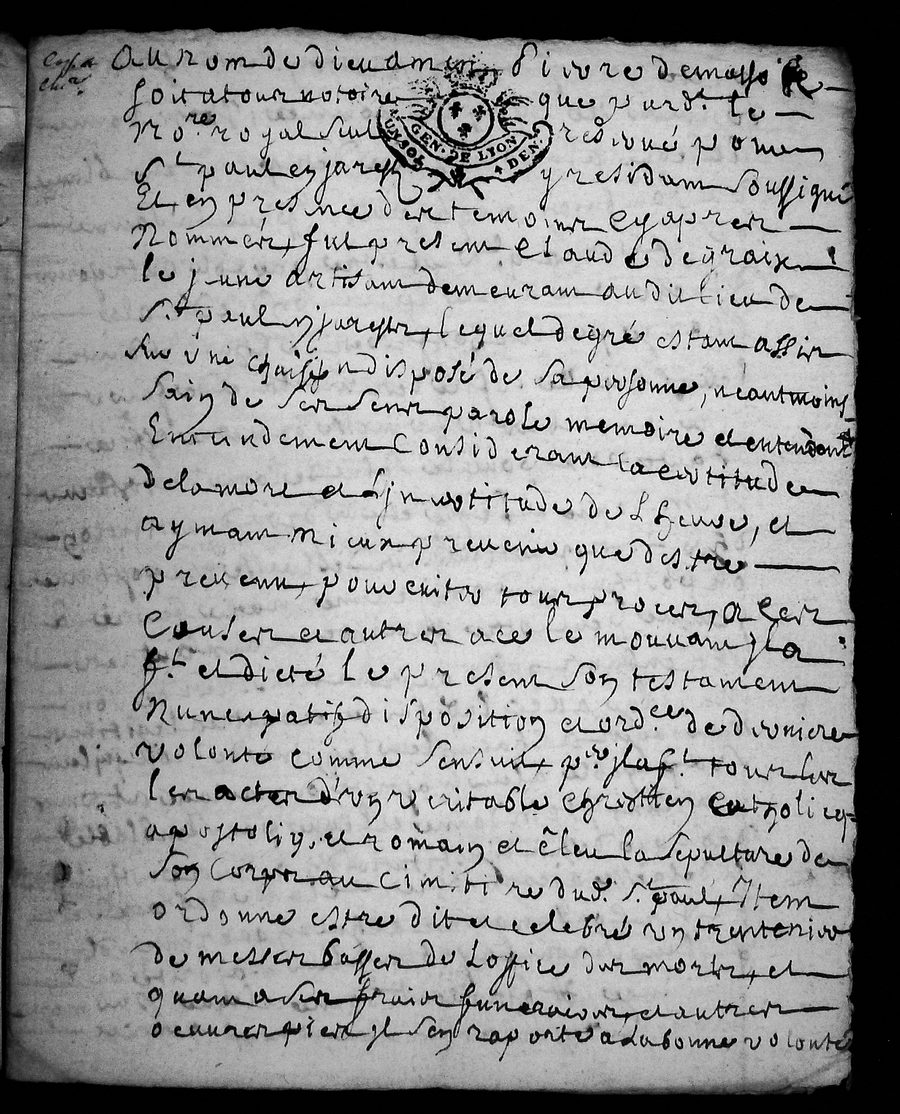 Au nom de dieu amen,
soit a tous notoire que pard.t le
No.re royal
s.t paul en jarest y residam soussigné
Et en presence des temoins cy apres
Nommés, fut present Claude degraix
le jeune artisam demeuram audit lieu de
s.t paul en jarest, lequel degré estam assis
sur une chaise indisposé de sa personne, neantmoins
sain de ses sens parole memoire et entendem.t
Entendement Consideram la certitude
de la mort et l'jncertitude de l'heure, et
aymam mieux prevenir que destre
prevenu, pour eviter tous proces, a ces
Causes et autres a ce le mouvam jl a
f.t et dicté le presem son testament
Nuncupatif disposition et ord.ce de derniere
volonté comme sensuit, p.r jl a f.t tous les
les actes d'un veritable chrestien Catholiq
apostoliq. et romain et éleu la sepulture de
son corps au cimitire dud. s.t paul, Jtem
ordonne estre dit et celebré un trentenier
de messes basses de l'office des morts, et
quam a ses frais funeraires, et autres
oeuvres pies jl sen raporte a la bonne volonté
GEN. DE LYON
UN SOL 4 DEN.